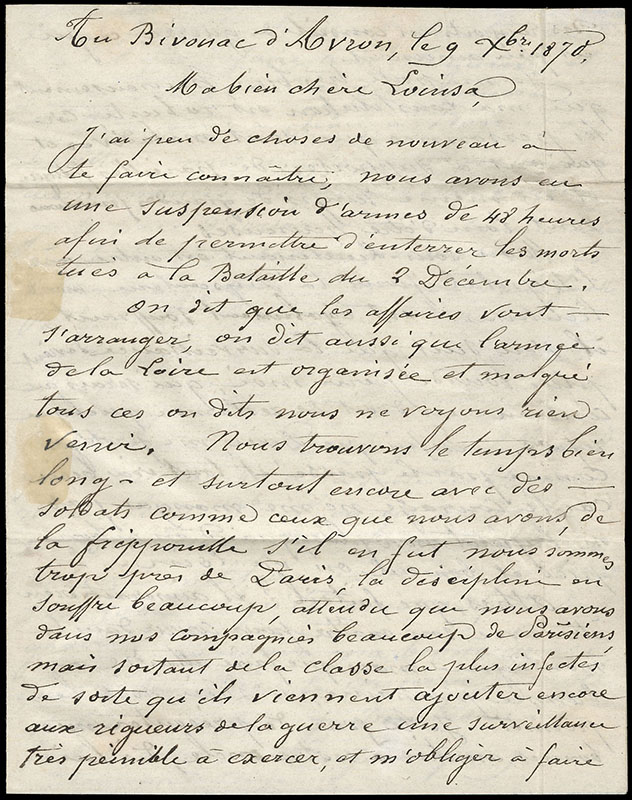 Au Bivouac d'Avron, le 9 Xbre 1870,
Ma bien chère Louisa,
J'ai peu de choses de nouveau à
te faire connaître, nous avons eu
une suspension d'armes de 48 heures
afin de permettre d'enterrer les morts
tués à la Bataille du 2 Décembre.
On dit que les affaires vont –
s'arranger, on dit aussi que l'armée
de la Loire est organisée et malgré
tous ces on dits nous ne voyons rien
venir. Nous trouvons le temps bien
long – et surtout encore avec des –
soldats comme ceux que nous avons, de
la frippouille s'il en fut nous sommes
trop près de Paris, la discipline en
souffre beaucoup, attendu que nous avons
dans nos compagnies beaucoup de Parisiens,
mais sortant de la classe la plus infecte,
de sorte qu'ils viennent ajouter encore
aux rigueurs de la guerre une surveillance
très pénible à exercer, et m'obliger à faire